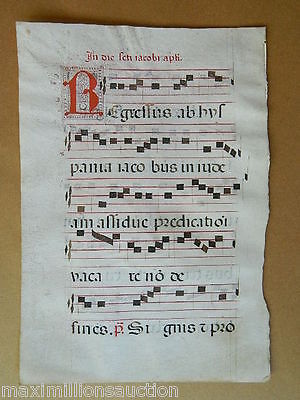 In die scti iacobi apli.
REgressus ab hys
pania iaco bus in iude
am assidue predicatioi
vaca re nō de
sines. p̄ Si gnis ⁊ pro
maximillionsauction